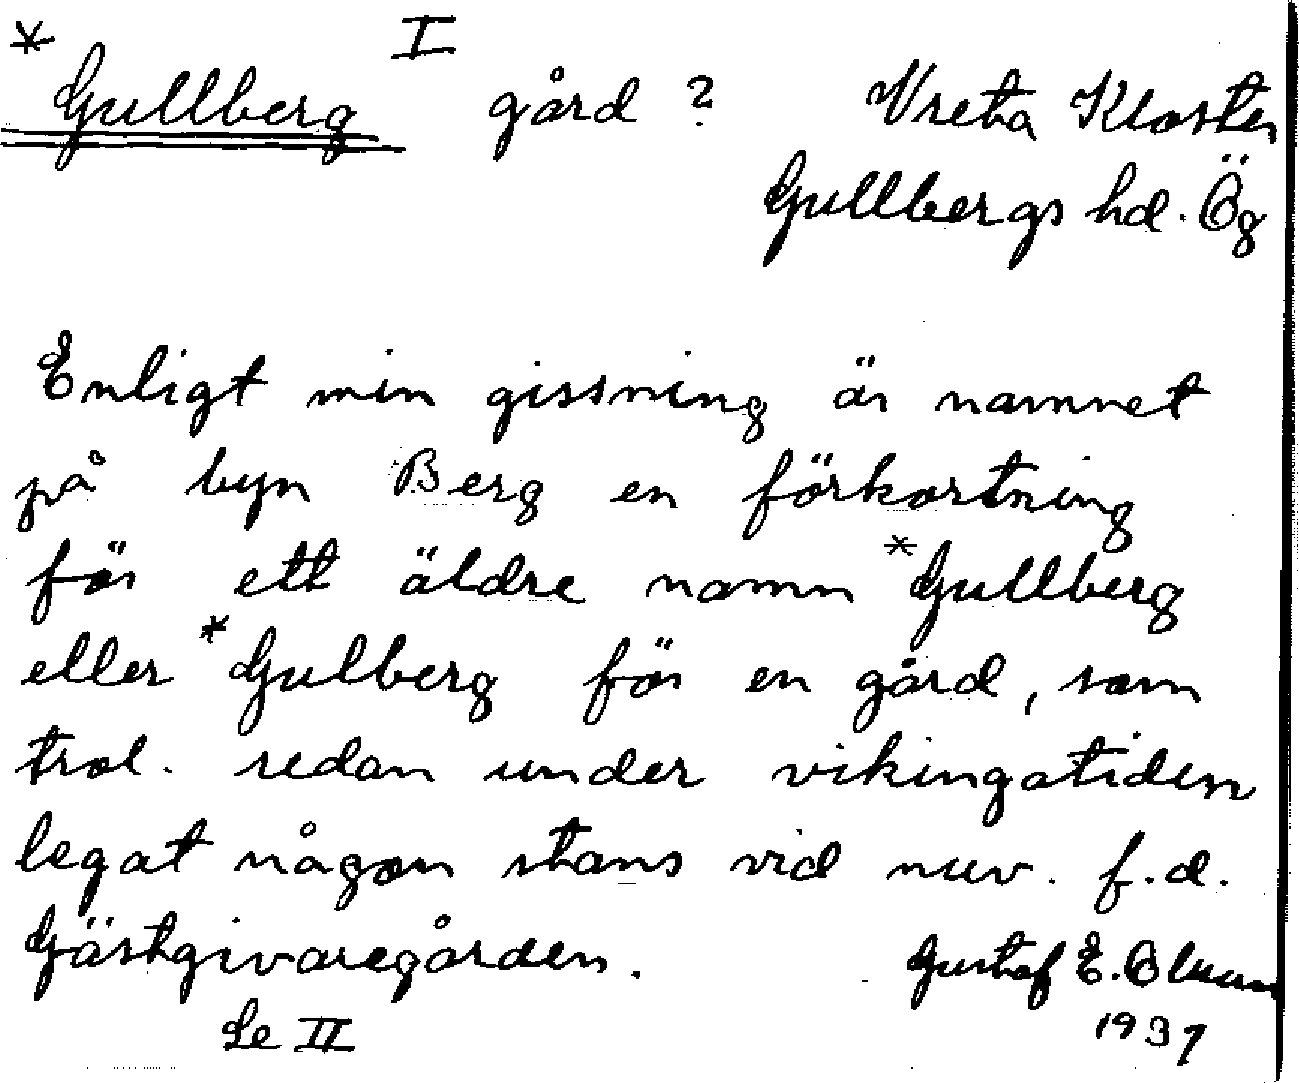 I
*Gullberg gård? Vreta Kloster
Gullbergs hd. Ög
Enligt min gissning är namnet
på byn Berg en förkortning
för ett äldre namn *Gullberg
eller *Gulberg för en gård, som
trol. redan under vikingatiden
legat någon stans vid nuv. f.d.
Gästgivaregården.
Gustaf E.
Se II
1937